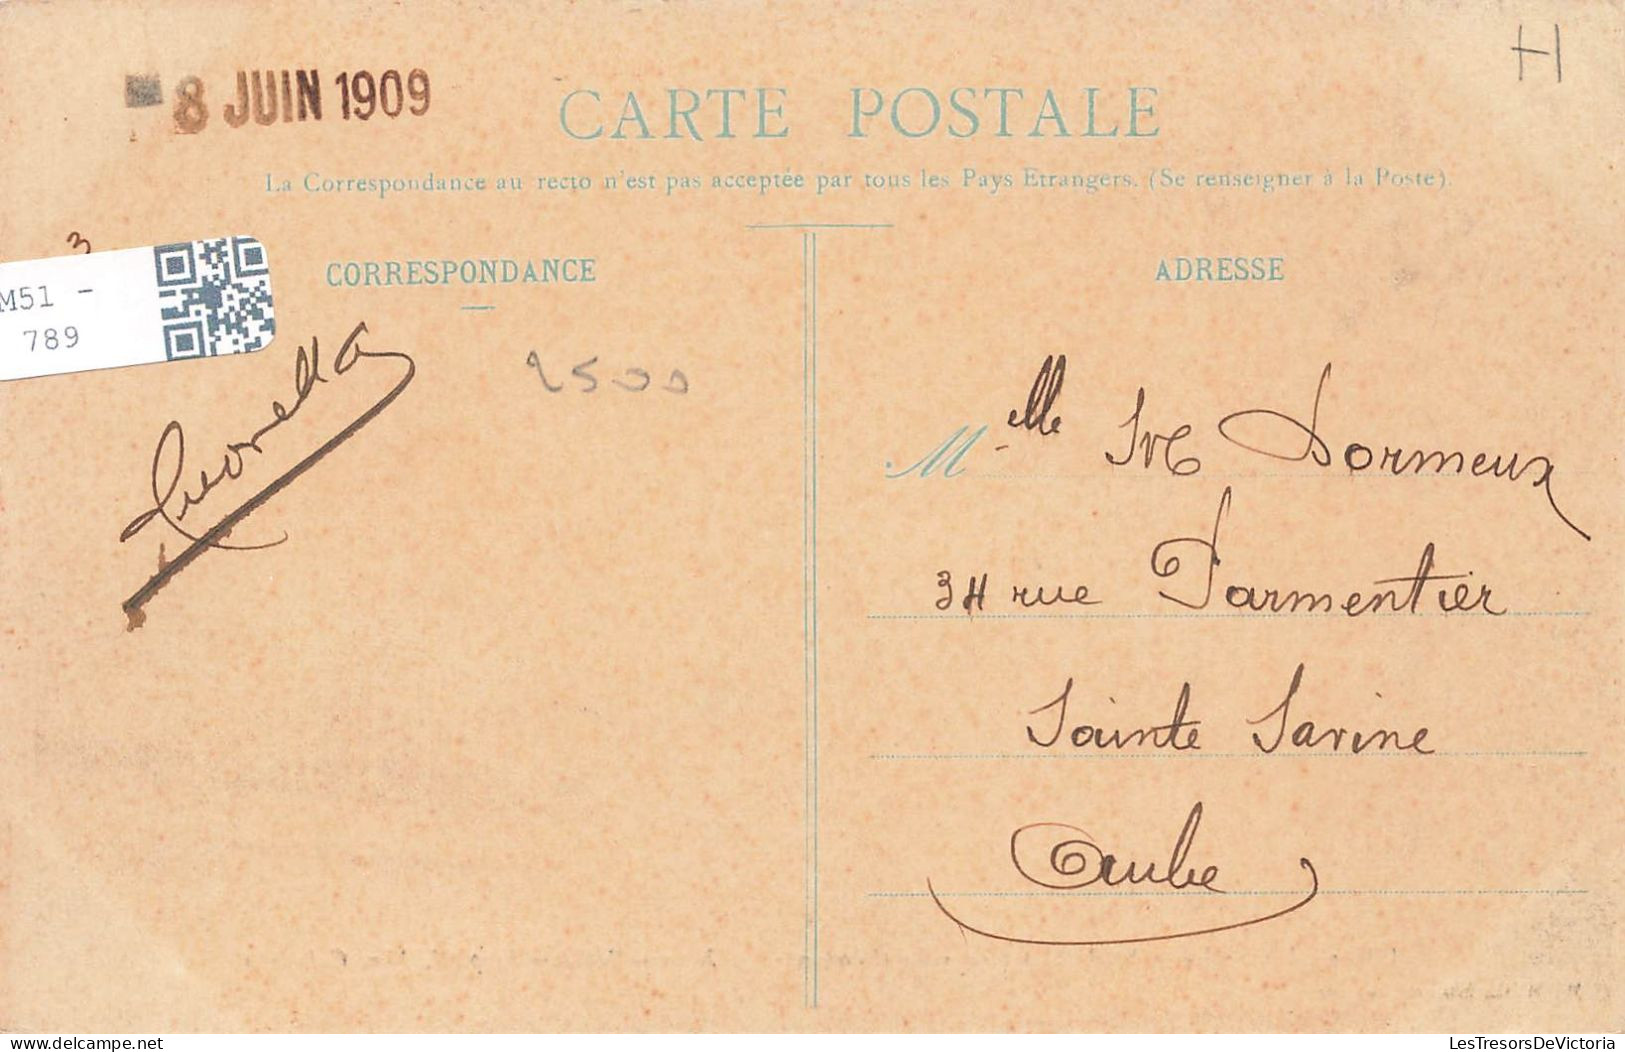 8 JUIN 1909
H
CARTE POSTALE
La Correspondance au recto n'est pas acceptée par tous les Pays Etrangers. (Se renseigner à la Poste).
3
M51 -
789
CORRESPONDANCE
ADRESSE
2500
Melle Dormeux
34 rue Parmentier
Sainte Savine
Aube
LesTresorsDeVictoria
delcampe.net